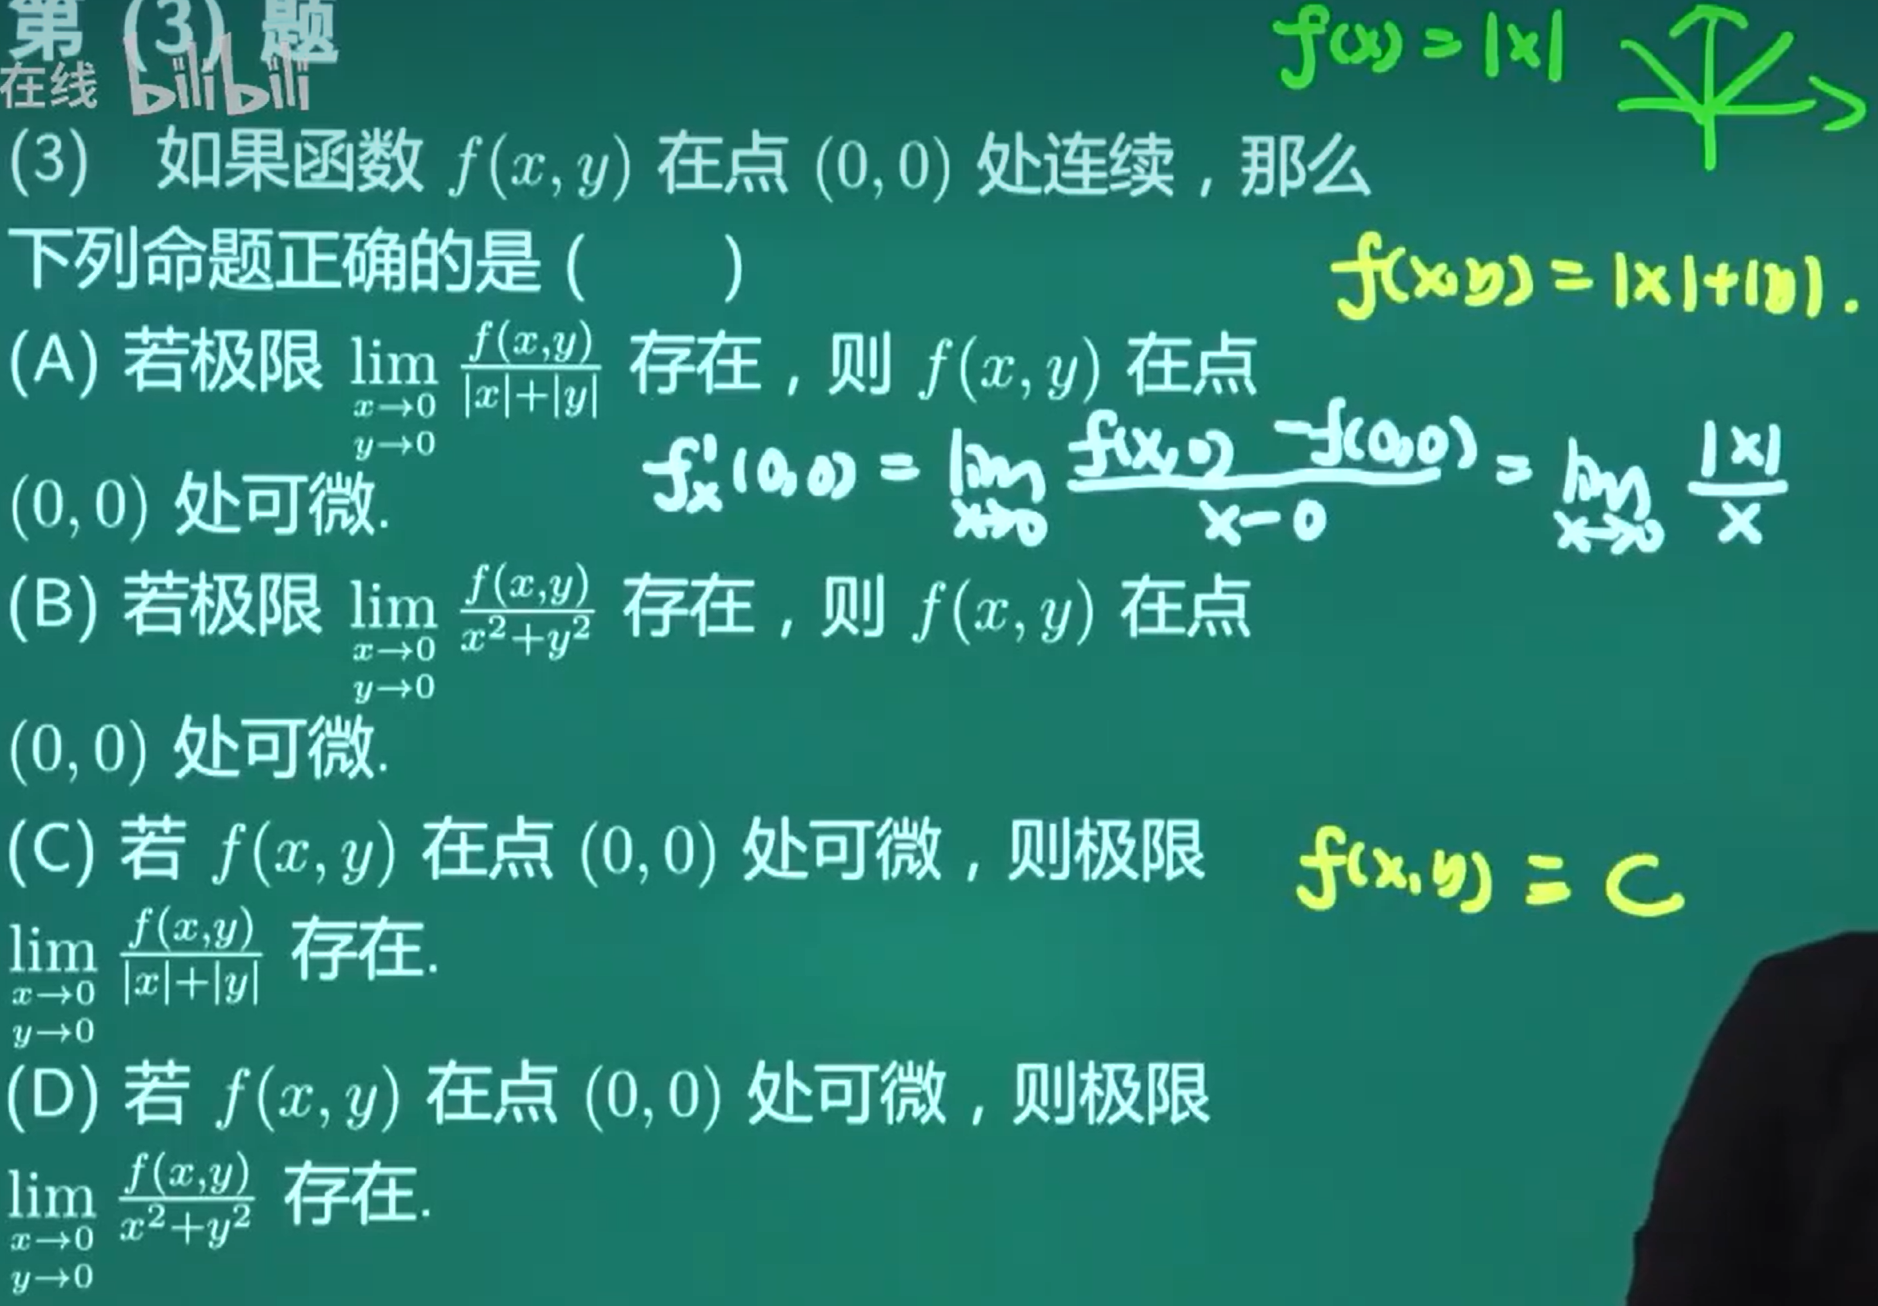 第 (3) 题
在线 bilibili
f(x) = |x|
(3) 如果函数 f(x, y) 在点 (0, 0) 处连续，那么
下列命题正确的是 (  )
f(x,y) = |x|+|y|.
(A) 若极限 lim x→0 y→0 f(x,y)/|x|+|y| 存在，则 f(x, y) 在点
(0, 0) 处可微.
f'x(0,0) = lim x→0 f(x,0) - f(0,0) / x-0 = lim x→0 |x|/x
(B) 若极限 lim x→0 y→0 f(x,y)/x²+y² 存在，则 f(x, y) 在点
(0, 0) 处可微.
(C) 若 f(x, y) 在点 (0, 0) 处可微，则极限
f(x,y) ≡ C
lim x→0 y→0 f(x,y)/|x|+|y| 存在.
(D) 若 f(x, y) 在点 (0, 0) 处可微，则极限
lim x→0 y→0 f(x,y)/x²+y² 存在.